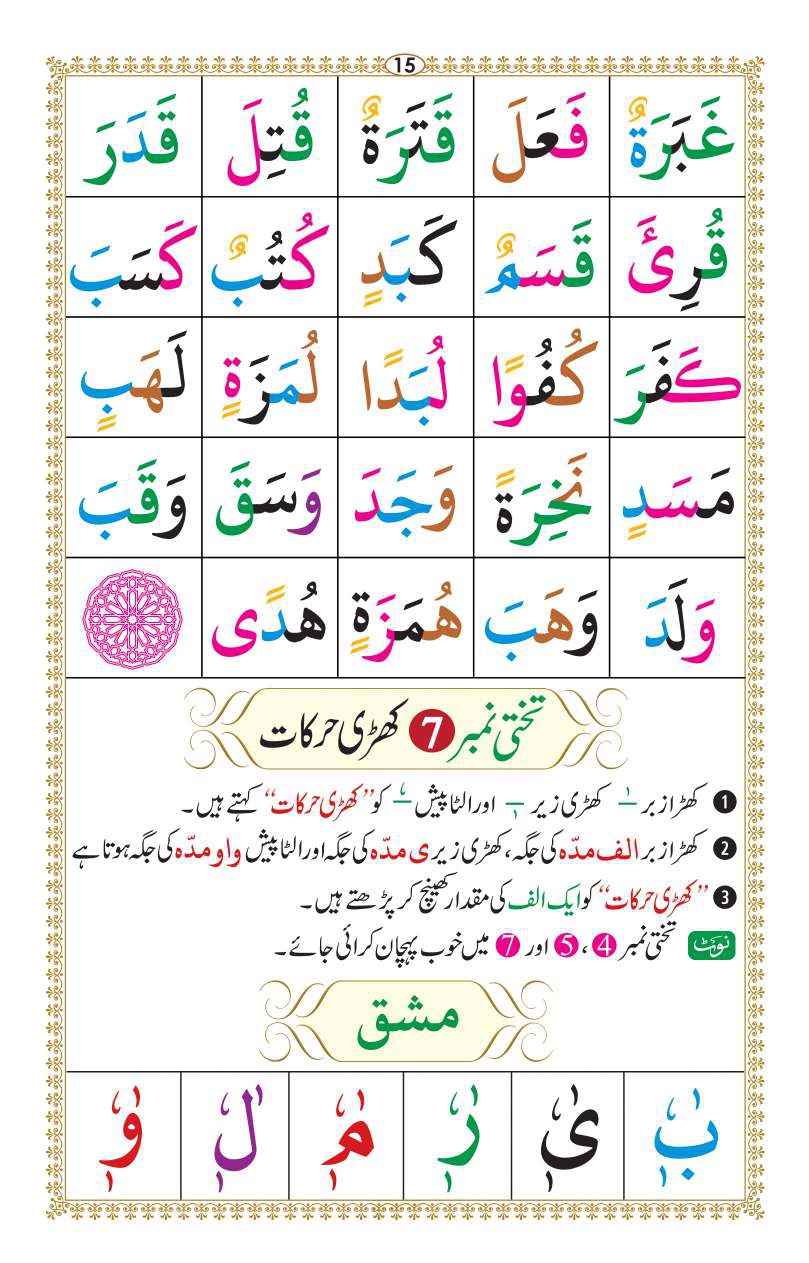 15
غَبَرَةٌ فَعَلَ قَتَرَةٌ قُتِلَ قَدَرَ
قُرِئَ قَسَمٌ كَبَدٍ كُتُبٌ كَسَبَ
كَفَرَ كُفُوًا لُبَدًا لُمَزَةٍ لَهَبٍ
مَسَدٍ نَخِرَةً وَجَدَ وَسَقَ وَقَبَ
وَلَدَ وَهَبَ هُمَزَةٍ هُدًى
تختی نمبر 7 کھڑی حرکات
1 کھڑا زبر ـٰ کھڑی زیر ـٖ اور الٹا پیش ـٗ کو ”کھڑی حرکات“ کہتے ہیں۔
2 کھڑا زبر الف مدّہ کی جگہ، کھڑی زیر ی مدّہ کی جگہ اور الٹا پیش واو مدّہ کی جگہ ہوتا ہے
3 ”کھڑی حرکات“ کو ایک الف کی مقدار کھینچ کر پڑھتے ہیں۔
نوٹ تختی نمبر 4 ، 5 اور 7 میں خوب پہچان کرائی جائے۔
مشق
بٰٖٗ یٰٖٗ رٰٖٗ مٰٖٗ لٰٖٗ وٰٖٗ